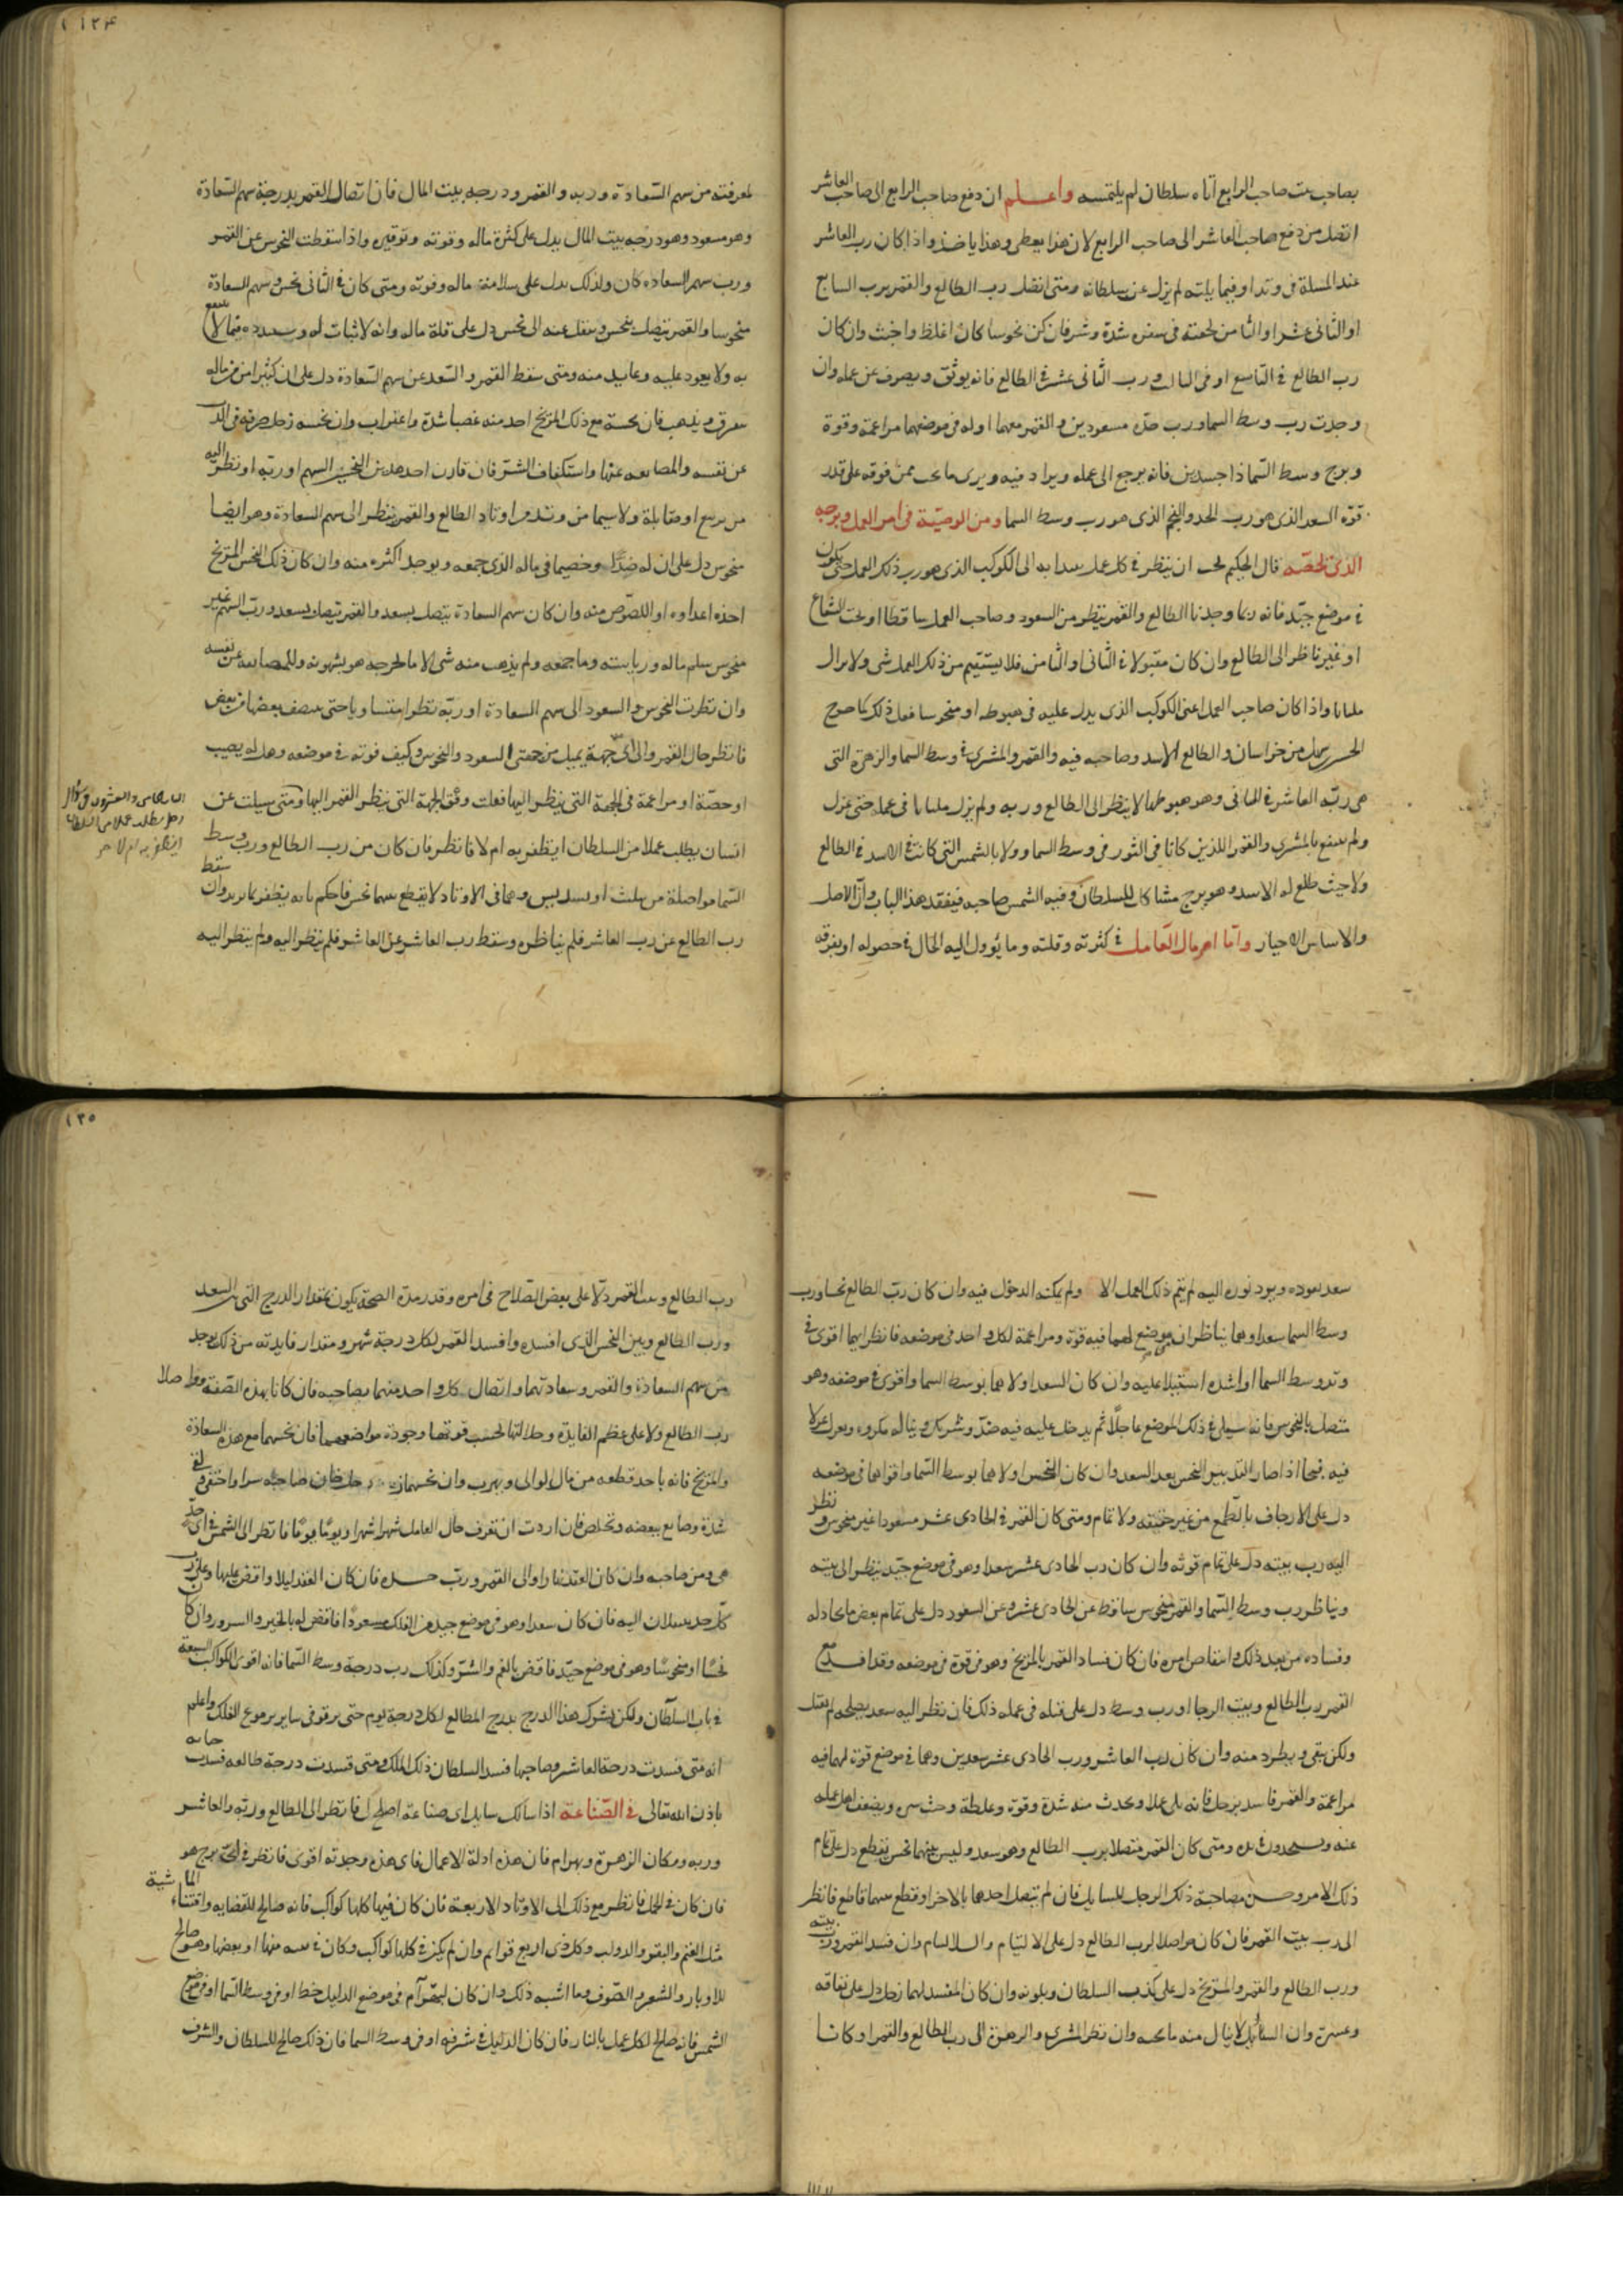 بصاحب بيت صاحب الرابع اتاه سلطان لم يلتمسه واعلم ان دفع صاحب الرابع الى صاحب العاشر
افضل من دفع صاحب العاشر الى صاحب الرابع لان هذا يعطى وهذا ياخذ واذا كان رب العاشر
عند المسلة فى وتد او فيما يليه لم يزل عن سلطانه ومتى اتصل رب الطالع والقمر برب السابع
او الثانى عشر او الثامن لحقته فى سفره شدة وشر فان كن نحوسا كان اغلظ واخبث وان كان
رب الطالع فى التاسع او فى الثالث ورب الثانى عشر فى الطالع فانه يوثق ويصرف عن عمله وان
وجدت رب وسط السما ورب حده مسعودين والقمر معهما اوله فى موضعهما مزاعمة وقوة
وبرج وسط السما ذا جسدين فانه يرجع الى عمله ويزاد فيه ويرى ما يحب ممن فوقه على قدر
قوة السعد الذى هو رب الحد والنجم الذى هو رب وسط السما ومن الوصية فى امر العمل وبرجه
الذى يخصه قال الحكيم يجب ان ينظر فى كل عمل يبدا به الى الكوكب الذى هو رب ذلك العمل حتى يكون
فى موضع جيد فانه ربما وجدنا الطالع والقمر ينظر من السعود وصاحب العمل ساقطا او تحت الشعاع
او غير ناظر الى الطالع وان كان مقبولا فى الثانى او الثامن فلا يستقيم من ذلك العمل شى ولا يزال
ملتاثا واذا كان صاحب العمل اعنى الكوكب الذى يدل عليه فى هبوطه او منحوسا فعل ذلك كما خرج
الحسن بن سهل من خراسان والطالع الاسد وصاحبه فيه والقمر والمشترى فى وسط السما والزهرة التى
هى ربة العاشر فى الثانى وهو هبوطها لا ينظر الى الطالع وربه ولم يزل ملتاثا فى عمله حتى عزل
ولم ينتفع بالمشترى والقمر اللذين كانا فى الثور فى وسط السما ولا بالشمس التى كانت فى الاسد فى الطالع
ولا حيث طلع له الاسد وهو برج مشاكل للسلطان وفيه الشمس صاحبه فيتفقد هذا الباب وان الاصل
والاساس الاختيار واما امر مال العامل فى كثرته وقلته وما يؤول اليه الحال فى حصوله او تفرقه
١٣٤
لمعرفته من سهم السعادة وربه والقمر ودرجه بيت المال فان اتصال القمر بدرجة سهم السعادة
وهو مسعود وهو درجه بيت المال يدل على كثرة ماله وقوته وتوفيره واذا سقطت النحوس عن القمر
ورب سهم السعاده كان ولذلك يدل على سلامة ماله وقوته ومتى كان فى الثانى نحس وسهم السعادة
منحوسا والقمر يتصل بنحس وينتقل عنه الى نحس دل على قلة ماله وانه لا ثبات له ويبدده فيما لا ينتفع
به ولا يعود عليه وعائد منه ومتى سقط القمر والسعد عن سهم السعادة دل على ان كثيرا من ماله
يتفرق ويذهب فان نحسه مع ذلك المريخ اخذ منه غصبا شدة واغتراب وان نحسه زحل صرفه فى الذب
عن نفسه والمصانعه عنها واستكفاف الشر فان قارن احد هذين النحسين السهم او ربه او نظر اليه
من تربيع او مقابلة ولا سيما من وتد من اوتاد الطالع والقمر ينظر الى سهم السعادة وهو ايضا
منحوس دل على ان له ضدا وخصيما فى ماله الذى جمعه ويوجد اكثره منه وان كان ذلك النحس المريخ
اخذه اعداوه او اللصوص منه وان كان سهم السعادة يتصل بسعد والقمر يتصل بسعد ورب السهم غير
منحوس سلم ماله ورياسته وما جمعه ولم يذهب منه شى الا ما يخرجه هو بشهوته وللمصانعه عن نفسه
وان نظرت النحوس والسعود الى سهم السعادة او ربه نظرا متساويا حتى ينصف بعضها من بعض
فانظر حال القمر والى اى جهة يميل من جهتى السعود والنحوس وكيف قوته فى موضعه وهل له نصيب
او حصة او مزاعمة فى الجهة التى ينظر اليها فعلت وفق الجهة التى ينظر القمر اليها ومتى سيلت عن
انسان يطلب عملا من السلطان ايظفر به ام لا فانظر فان كان من رب الطالع ورب وسط
السما مواصلة من تثليث او تسديس وهما فى الاوتاد لا يقطع بينهما نحس فاحكم بانه يظفر بما يريد وان سقط
رب الطالع عن رب العاشر فلم يناظره وسقط رب العاشر عن العاشر فلم ينظر اليه ولم ينظر اليه
الباب الخامس والعشرون فى سؤال
رجل يطلب عملا من السلطان
ايظفر به ام لا
سعد يعوده ويرد نوره اليه لم يتم ذلك العمل الا ولم يمكنه الدخول فيه وان كان رب الطالع نحسا ورب
وسط السما سعدا وهما يناظران موضع لهما فيه قوة ومزاعمة لكل واحد فى موضعه فانظر ايهما اقوى فى
وتد وسط السما او اشده استيلا عليه وان كان السعد اولاهما بوسط السما واقوى فى موضعه وهو
متصل بالنحوس فانه سيلى فى ذلك الموضع عاجلا ثم يدخل عليه فيه ضد وشريك ويناله مكروه ويعزل عزلا
فيه قبيحا اذا صار التدبير النحس بعد السعد وان كان النحس اولاهما بوسط السما واقواهما فى موضعه
دل على الارجاف بالطمع من غير حقيقه ولا تمام ومتى كان القمر فى الحادى عشر مسعودا غير منحوس ونظر
اليه رب بيته دل على تمام قوته وان كان رب الحادى عشر سعدا وهو فى موضع جيد ينظر الى بيته
ويناظر رب وسط السما والقمر منحوس ساقط عن الحادى عشر وعن السعود دل على تمام بعض ما يحاوله
وفساده من بعد ذلك وانتقاص امره فان كان فساد القمر بالمريخ وهو فى قوة فى موضعه وقد افسد مع
القمر رب الطالع وبيت الرجا او رب وسط دل على قتله فى عمله ذلك فان نظر اليه سعد يصلحه لم يقتل
ولكن يبقى ويطرد منه وان كان رب العاشر ورب الحادى عشر سعدين وهما فى موضع قوة لهما فيه
مزاعمة والقمر فاسد بزحل فانه يلى عملا ويحدث منه شدة وقوة وغلظة وخبث سير ويضعف اهل عمله
عنه ومتى كان القمر متصلا برب الطالع وهو سعد وليس بينهما نحس يقطع دل على تمام
ذلك الامر وحسن مصاحبة ذلك الرجل للسايل فان لم يتصل احدهما بالاخر او قطع بينهما قاطع فانظر
الى رب بيت القمر فان كان مواصلا لرب الطالع دل على الالتيام والسلام وان فسد القمر ورب بيته
ورب الطالع والقمر والمريخ دل على كذب السلطان وبلونه وان كان المفسد لهما زحل دل على نفاقه
وعسره وان السائل لا ينال منه ما يحبه وان نظر المشترى والزهرة الى رب الطالع والقمر او كانا
١٣٥
رب الطالع وبيت القمر دلا على بعض الصلاح فى امره وقدر مدة الصحة يكون بمقدار الدرج التى بين السعد
ورب الطالع وبين النحس الذى افسده وافسد القمر لكل درجة شهر ومقدار فايدته من ذلك يوجد
من سهم السعادة والقمر وسعادتهما واتصال كل واحد منهما بصاحبه فان كانا بهذه الصفة وواصلا
رب الطالع دلا على عظم الفايدة وجلالتها بحسب قوتهما وجودة مواضعهما فان نحسهما مع هذه السعادة
والمريخ فانه ياخذ قطعه من مال الوالى ويهرب وان نحسهما زحل خان صاحبه سرا واختفى فى
شدة وصانع ببعضه وتخلص فان اردت ان تعرف حال العامل شهرا شهرا ويوما يوما فانظر الى الشمس فى اى حد
هى ومن صاحبه وان كان العقد نهارا والى القمر ورب حده فان كان العقد ليلا واقض عليها وعلى رب
كل حد يسلان اليه فان كان سعدا وهو فى موضع جيد من الفلك مسعودا فاقض له بالخير والسرور وان كان
نحسا او منحوسا وهو فى موضع جيد فاقض بالغم والشر وكذلك رب درجة وسط السما فانه اقوى الكواكب السبعة
فى باب السلطان ولكن يشرك هذا الدرج بدرج المطالع لكل درجة يوم حتى برقو فى ساير بربوع الفلك واعلم
انه متى فسدت درجة العاشر وصاحبها فسد السلطان ذلك الملك ومتى فسدت درجة طالعه فسدت حياته
باذن الله تعالى فى الصناعة اذا سالك سايل اى صناعة اصلح لى فانظر الى الطالع وربه والعاشر
وربه ومكان الزهرة وبهرام فان هذه ادلة الاعمال فاى هذه وجدته اقوى فانظر فى اى برج هو
فان كان فى الحمل فانظر مع ذلك الى الاوتاد الاربعة فان كان فيها كلها كواكب فانه صالح للقصابه واقتناء الماشية
مثل الغنم والبقر والدواب وكل ذى اربع قوائم وان لم يكن فى كلها كواكب وكان فى بيته منها او بعضها وهو صالح
للاوبار والشعر والصوف وما اشبه ذلك وان كان لبهرام فى موضع الدليل حظ او فى وسط السما او فى موضع
الشمس فانه صالح لكل عمل بالنار فان كان الدليل فى شرفه او فى وسط السما فان ذلك صالح للسلطان والشرف